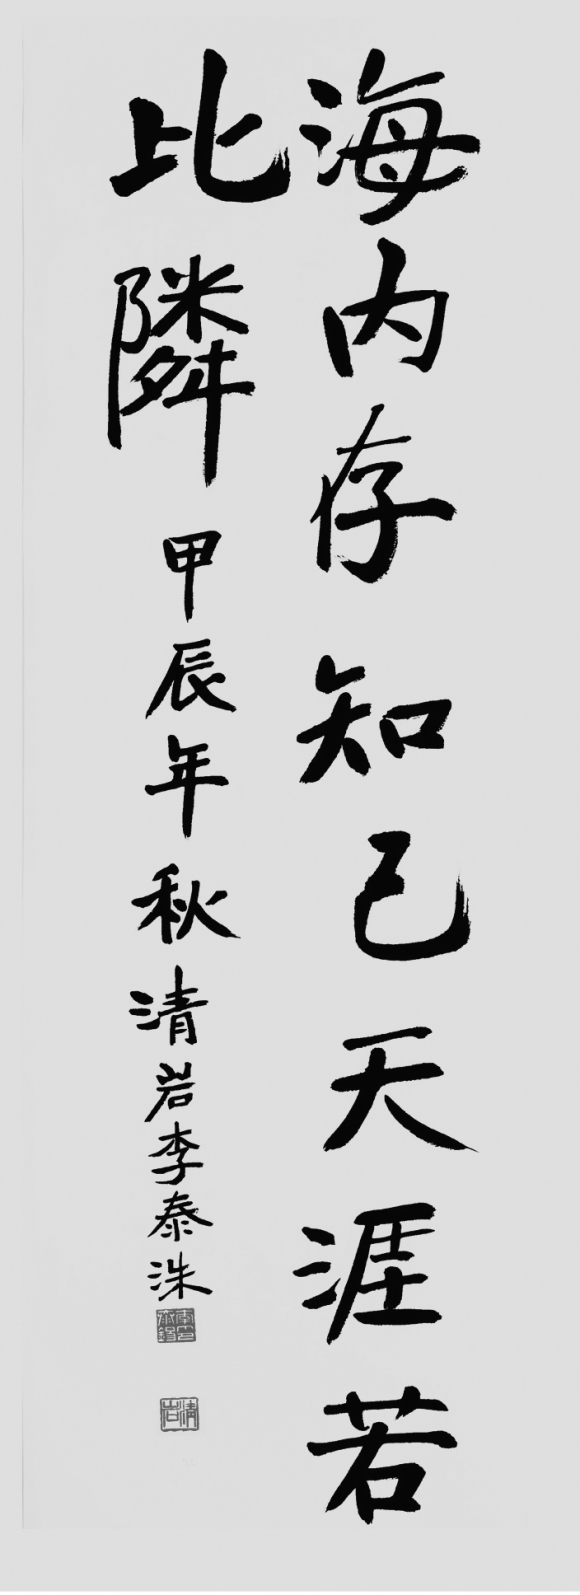 海内存知己天涯若
比隣 甲辰年秋清岩李泰洙
清岩